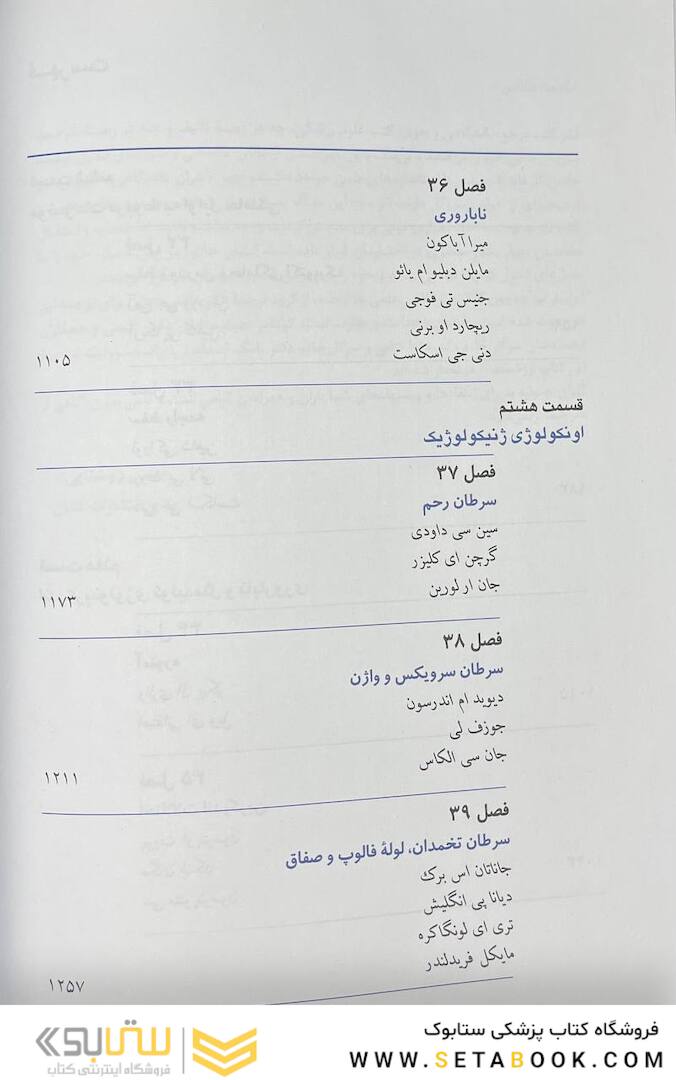 فصل ۳۶
ناباروری
میرا آباکون
مایلن دبلیو ام یائو
جنیس تی فوجی
ریچارد او برنی
دنی جی اسکاست
۱۱۰۵
قسمت هشتم
اونکولوژی ژنیکولوژیک
فصل ۳۷
سرطان رحم
سین سی داودی
گرچن ای کلیزر
جان ار لورین
۱۱۷۳
فصل ۳۸
سرطان سرویکس و واژن
دیوید ام اندرسون
جوزف لی
جان سی الکاس
۱۲۱۱
فصل ۳۹
سرطان تخمدان، لولهٔ فالوپ و صفاق
جاناتان اس برک
دیانا پی انگلیش
تری ای لونگاکره
مایکل فریدلندر
۱۲۵۷
فروشگاه کتاب پزشکی ستابوک
WWW.SETABOOK.COM
ستابوک
فروشگاه اینترنتی کتاب